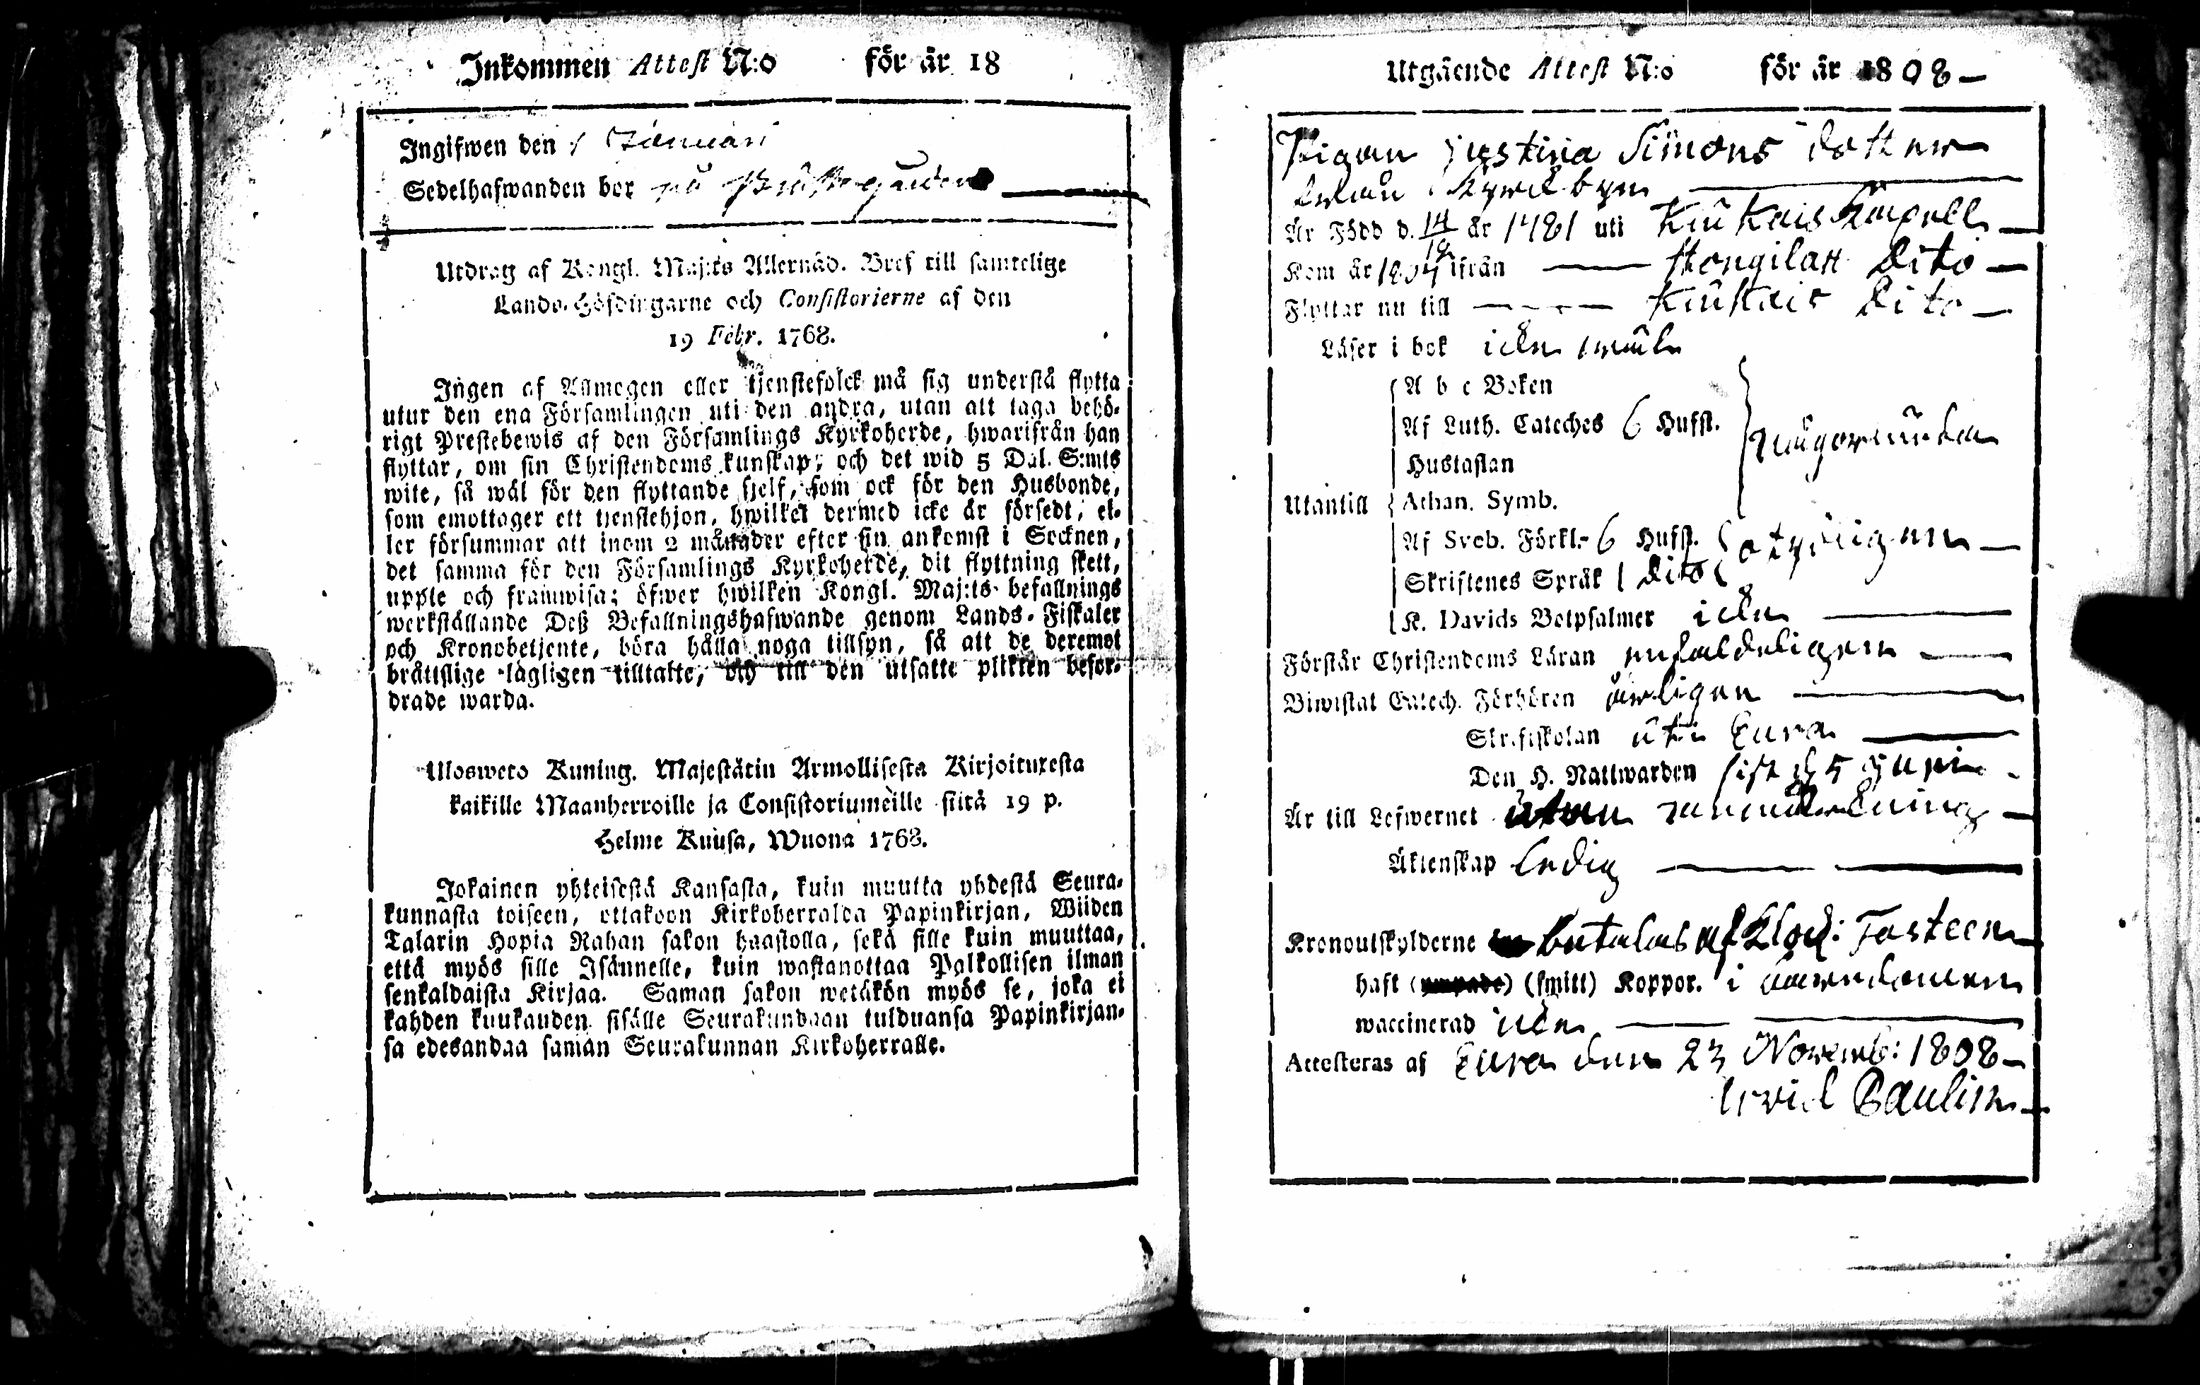 Inkommen Attest N:o för år 18
Ingifwen den 1 Januari
Sedelhafwanden bor på
Utdrag af Kongl. Maj:ts Allernåd. Bref till samtelige
Lands-Höfdingarne och Consistorierne af den
19 Febr. 1768.
Ingen af Allmogen eller tjenstefolck må sig understå flytta
utur den ena Församlingen uti den andra, utan att taga behö-
rigt Prestebewis af den Församlings Kyrkoherde, hwarifrån han
flyttar, om sin Christendoms kunskap; och det wid 5 Dal. S:mts
wite, så wäl för den flyttande sjelf, som ock för den Husbonde,
som emottager ett tjenstehjon, hwilket dermed icke är försedt, el-
ler försummar att inom 2 månader efter sin ankomst i Socknen,
det samma för den Församlings Kyrkoherde, dit flyttning skett,
upple och framwisa; öfwer hwilken Kongl. Maj:ts befallnings
werkställande Deß Befallningshafwande genom Lands-Fiskaler
och Kronobetjente, böra hålla noga tillsyn, så att de deremot
bråttslige lagligen tilltalte, och till den utsatte plikten befor-
drade warda.
Ulosweto Kuning. Majestätin Armollisesta Kirjoituxesta
kaikille Maanherroille ja Consistoriumeille siitä 19 p.
Helme Kuusa, Wuona 1768.
Jokainen yhteisestä Kansasta, kuin muutta yhdestä Seura-
kunnasta toiseen, ottakoon Kirkoherralda Papinkirjan, Wiiden
Talarin Hopia Rahan sakon haastolla, sekä sille kuin muuttaa,
että myös sille Isännelle, kuin wastanottaa Palkollisen ilman
senkaldaista Kirjaa. Saman sakon wetäkön myös se, joka ei
kahden kuukauden sisälle Seurakundaan tulduansa Papinkirjan-
sa edesandaa saman Seurakunnan Kirkoherralle.
Utgående Attest N:o för år 1808
Pigan Justina Simons dotter
ifrån Kyrckbyn
Är Född d. 14 år 1781 uti Kiukais Capell
Kom år ifrån dito
Flyttar nu till Kiukais dito
Läser i bok icke
A b c Boken
Af Luth. Cateches 6 Hufst.
Hustaflan
någorlunda
Utantill
Athan. Symb.
Af Sveb. Förkl. 6 Hufst.
Skriftenes Språk dito
otydligen
K. Davids Botpsalmer icke
Förstår Christendoms Läran enfaldeligen
Biwistat Catech. Förhören årligen
Skriftskolan uti Eura
Den H. Nattwarden sist d 5 Juni
Är till Lefwernet utan
Äktenskap ledig
Kronoutskylderne betalas af
haft (ympade) (smitt) Koppor. i barndomen
waccinerad icke
Attesteras af Eura den 23 Novemb: 1808
Arvid Paulin